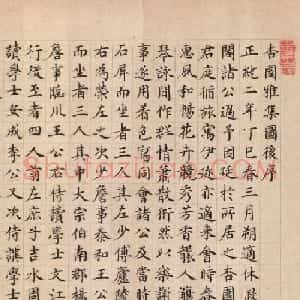 杏園雅集圖後序
正統二年丁巳春三月朔適休暇
閣諸公過予因延於所居之杏園
君庭循旅寓伊邇亦適來會時春
惠風和暢花卉競秀芳香襲人觴
琴詠間作群情蕭散衎然以樂謝
事遂用着色寫同會諸公及當時
石屏而坐者三人其左少傅廬陵
右為榮左之次少詹事泰和王公
而坐者三人其中大宗伯南郡楊
詹事臨川王公右侍讀學士文江
行後至者四人前左庶子吉水周
讀學士安成李公又次侍講學士